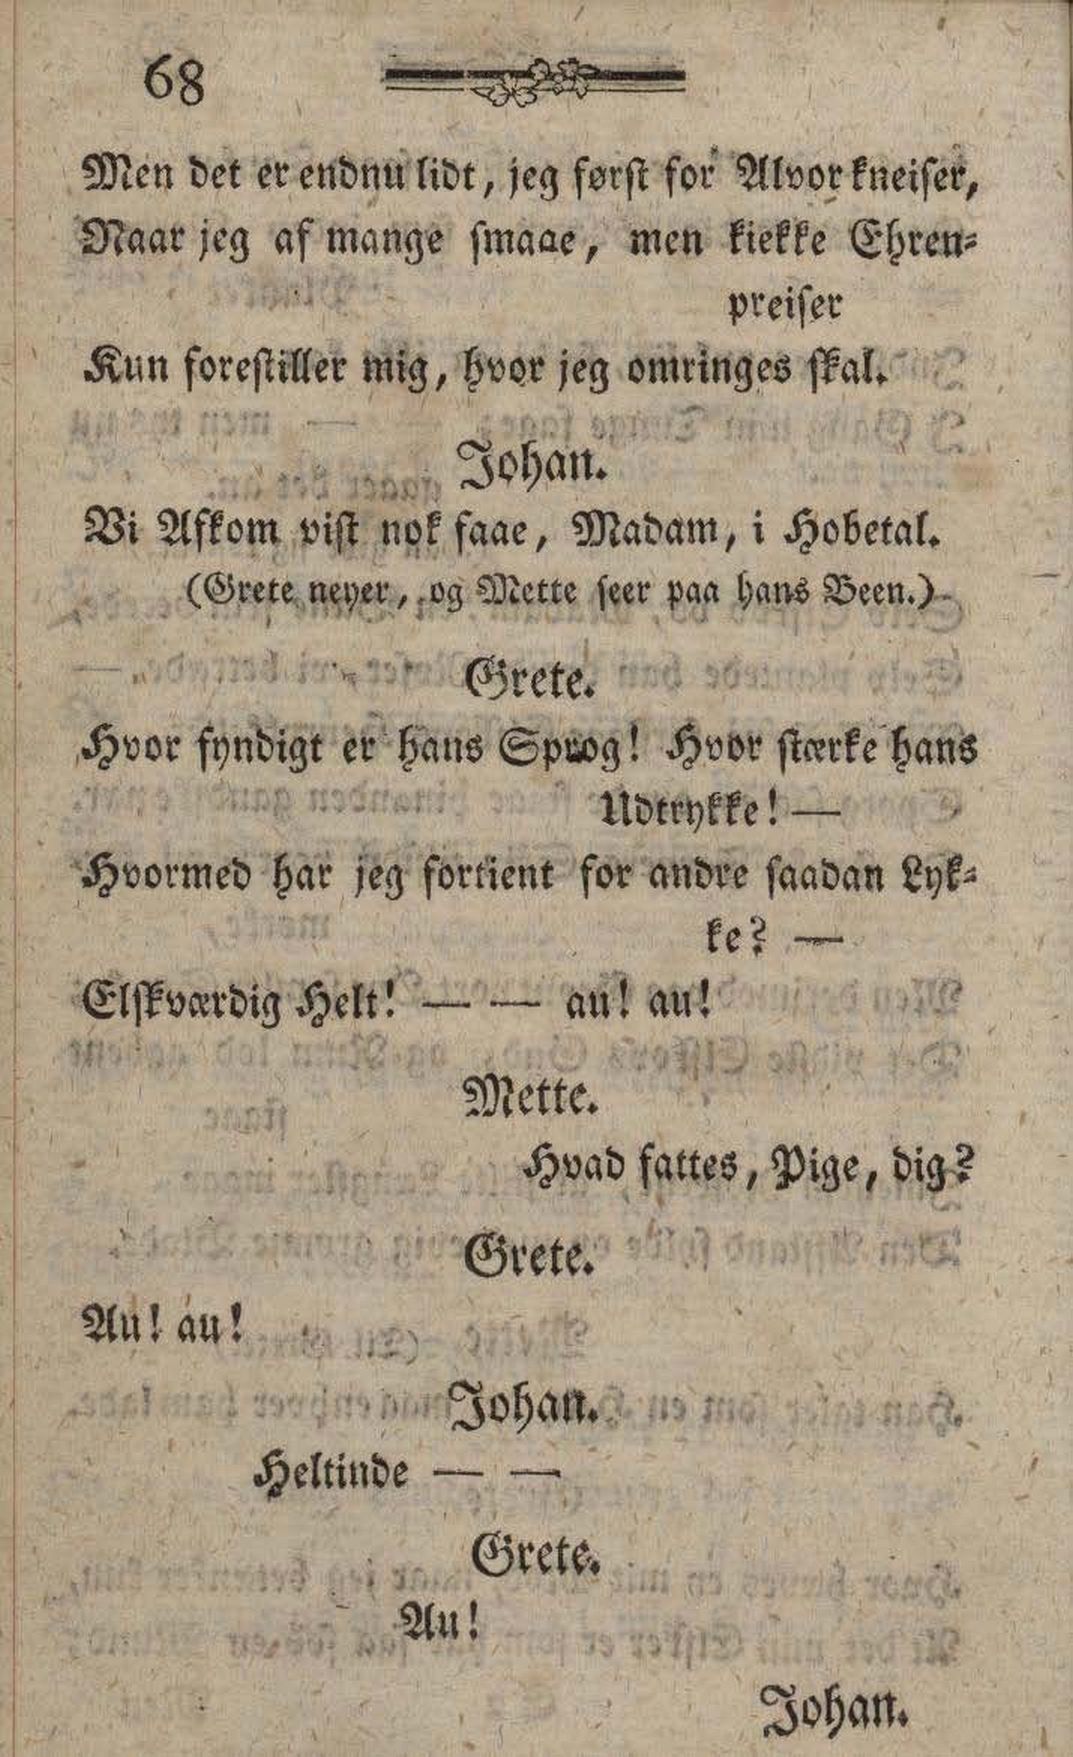 68
Men det er endnu lidt, jeg først for Alvor kneiser,
Naar jeg af mange smaae, men kiekke Ehren-
preiser
Kun forestiller mig, hvor jeg omringes skal.
Johan.
Vi Afkom vist nok faae, Madam, i Hobetal.
(Grete neyer, og Mette seer paa hans Been.)
Grete.
Hvor fyndigt er hans Sprog! Hvor stærke hans
Udtrykke! —
Hvormed har jeg fortient for andre saadan Lyk-
ke? —
Elskværdig Helt! — — au! au!
Mette.
Hvad fattes, Pige, dig?
Grete.
Au! au!
Johan.
Heltinde — —
Grete.
Au!
Johan.